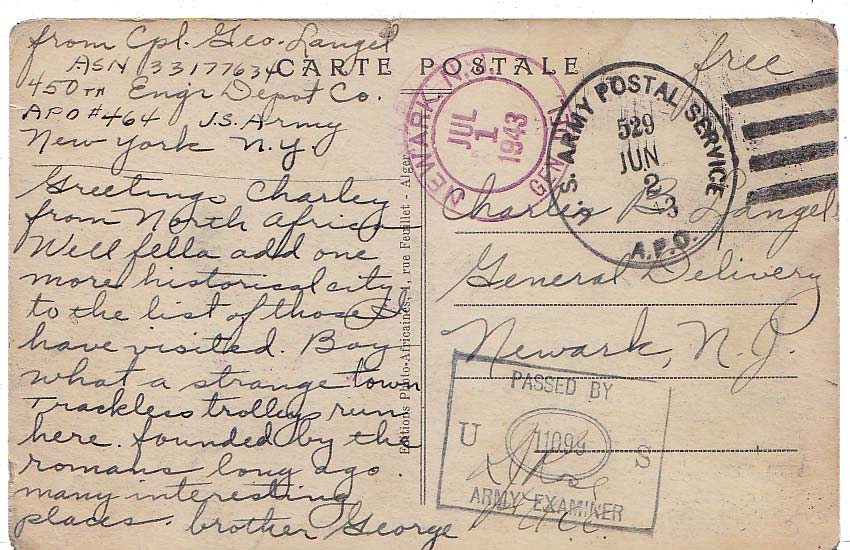 from Cpl. Geo. Langel
ASN 33177634
450TH Engr Depot Co.
APO #464 U.S. Army
New York N.Y.
CARTE POSTALE
free
NEWARK, N.J.
JUL
1
1943
GEN.
U.S. ARMY POSTAL SERVICE
529
JUN
2
43
A.P.O.
Greetings Charley
from North Africa
Well fella add one
more historical city
to the list of those I
have visited. Boy
what a strange town
Trackless trolleys run
here. founded by the
romans long ago.
many interesting
places. brother George
Editions Photo-Africaines, 4, rue Feuillet - Alger
Charles R. Langel
General Delivery
Newark, N.J.
PASSED BY
U 11099 S
ARMY EXAMINER